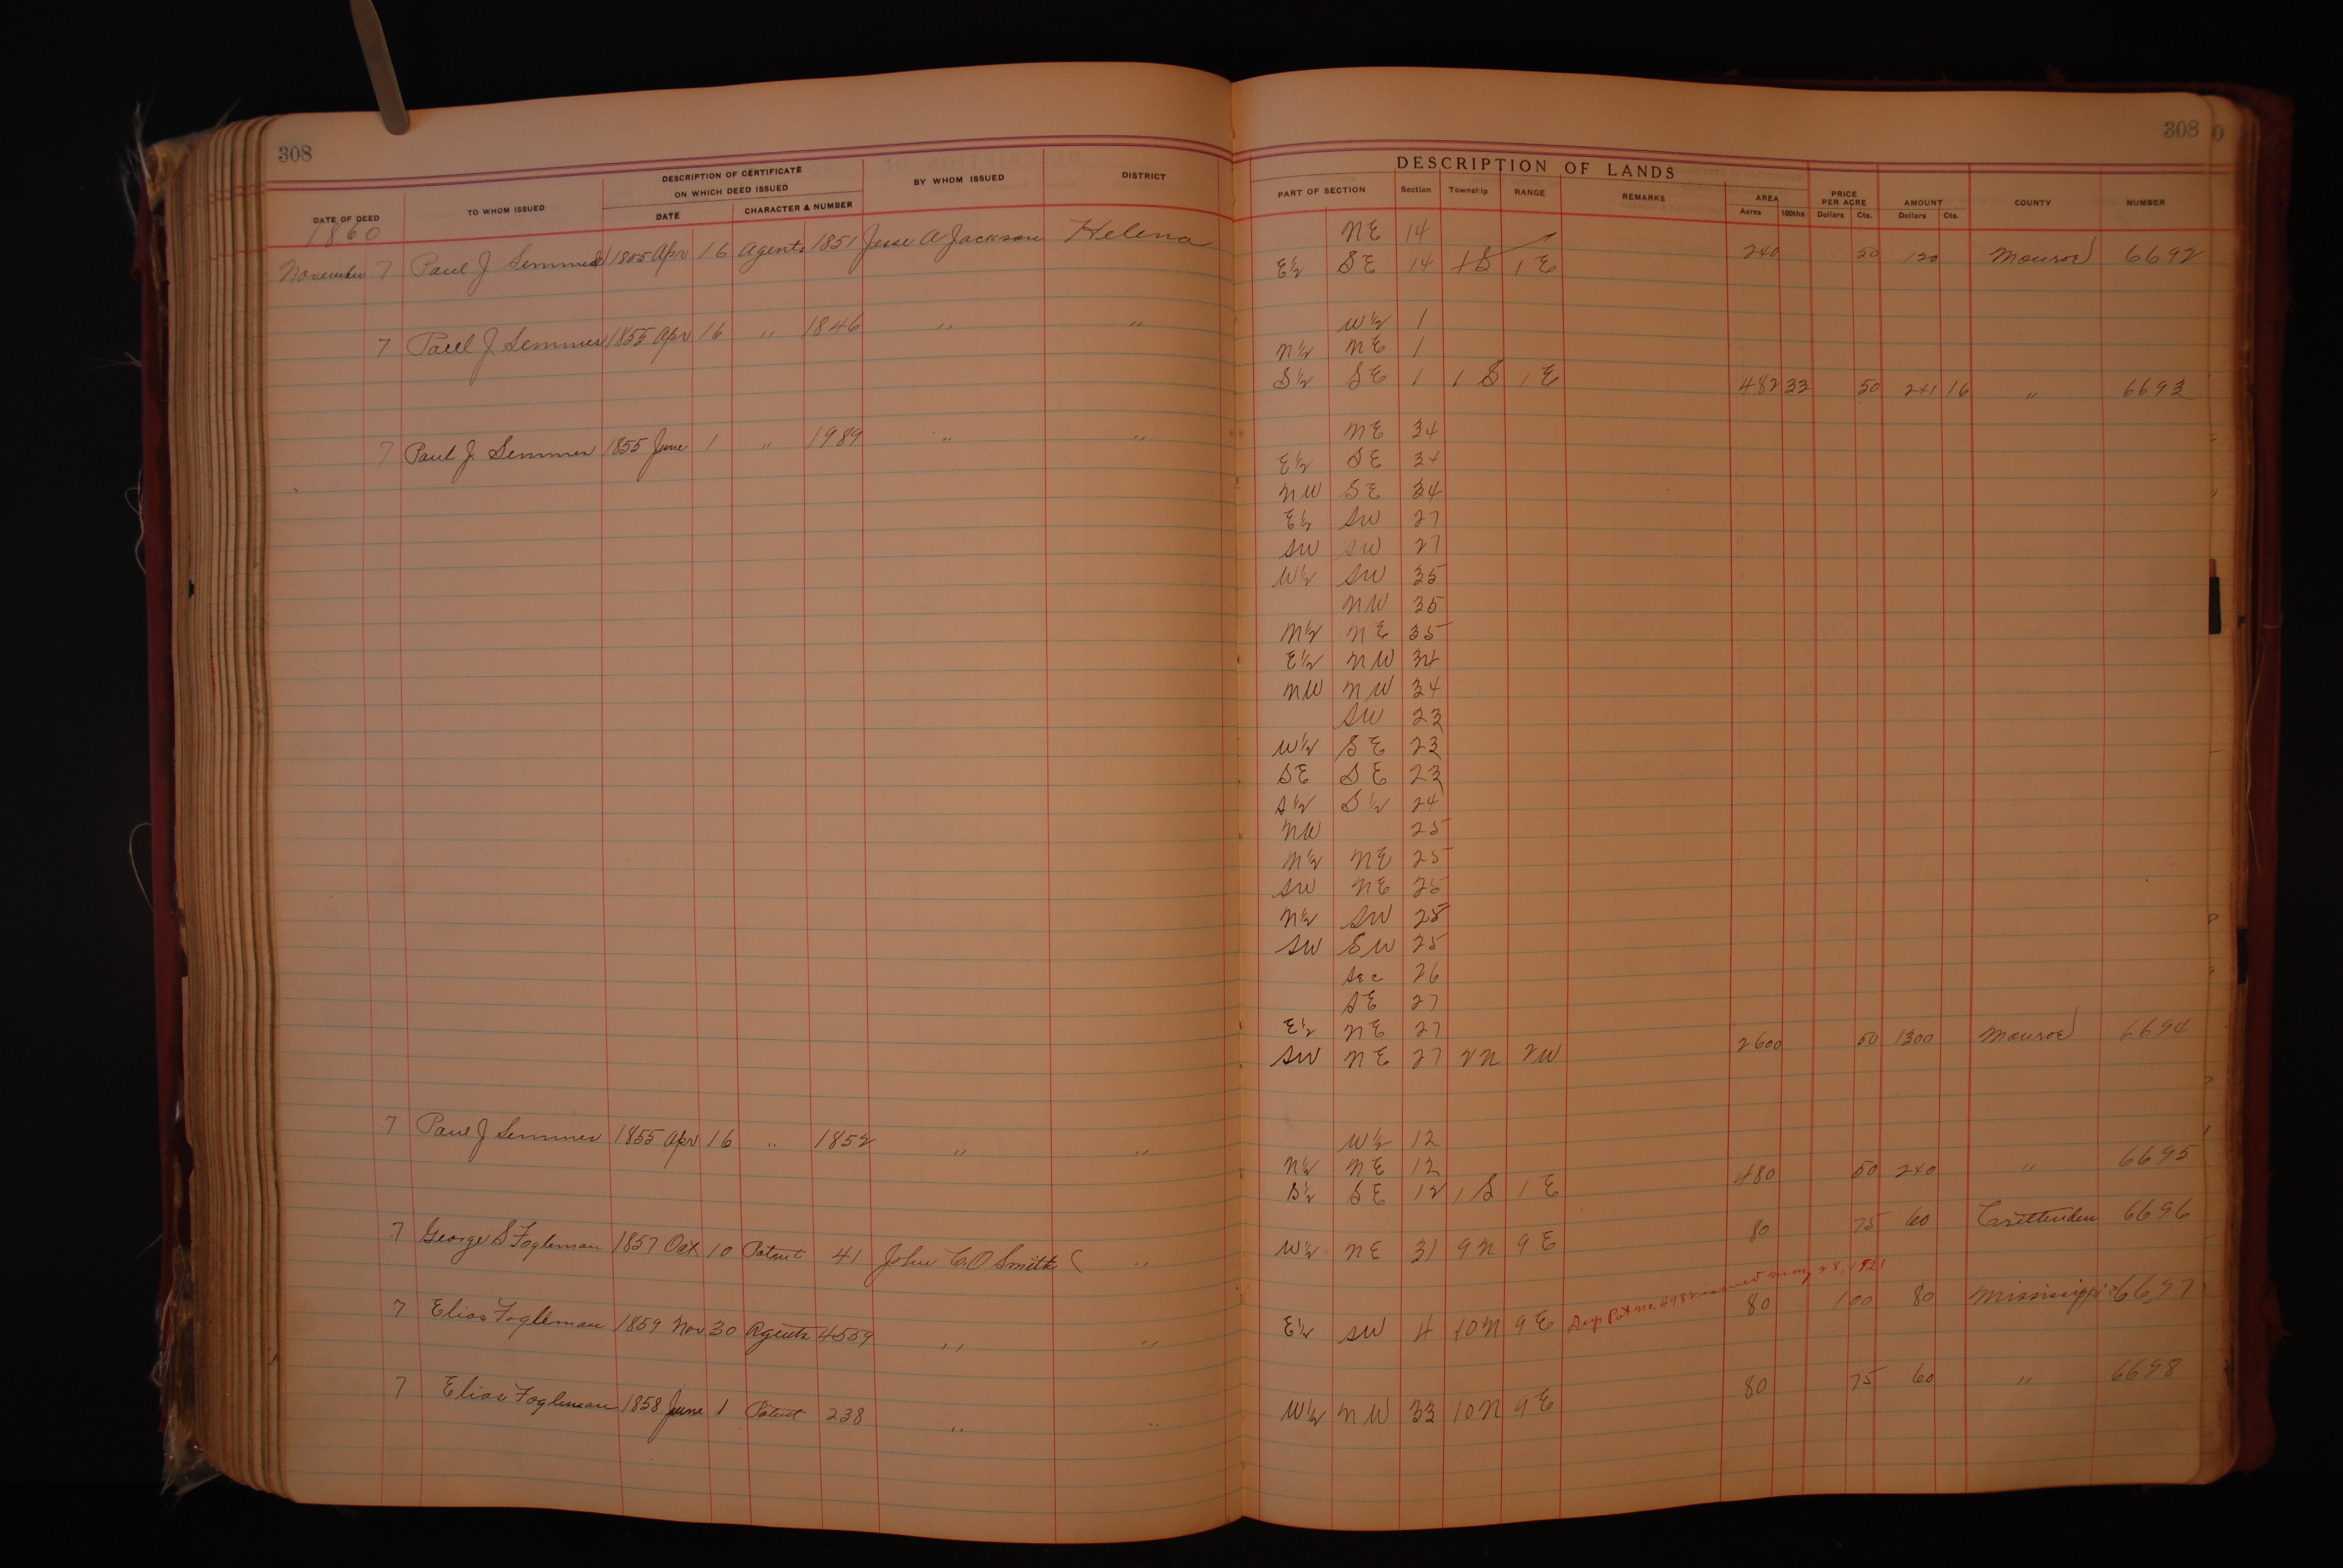 308
308
DESCRIPTION OF LANDS
DATE OF DEED TO WHOM ISSUED DESCRIPTION OF CERTIFICATE ON WHICH DEED ISSUED DATE CHARACTER & NUMBER BY WHOM ISSUED DISTRICT PART OF SECTION Section Township RANGE REMARKS AREA Acres 100ths PRICE PER ACRE Dollars Cts. AMOUNT Dollars Cts. COUNTY NUMBER
1860
NE 14
November 7 Paul J Semmes 1855 Apr 16 Agents 1851 Jesse A Jackson Helena E½ SE 14 1S 1E 240 50 120 Monroe 6692
7 Paul J Semmes 1855 Apr 16 " 1846 " " W½ 1
N½ NE 1
S½ SE 1 1S 1E 482 33 50 241 16 " 6693
7 Paul J Semmes 1855 June 1 " 1989 " " NE 34
E½ SE 34
NW SE 34
E½ SW 27
SW SW 27
W½ SW 35
NW 35
N½ NE 35
E½ NW 34
NW NW 34
SW 23
W½ SE 23
SE SE 23
S½ S½ 24
NW 25
N½ NE 25
SW NE 25
N½ SW 25
SW SW 25
Sec 26
SE 27
E½ NE 27
SW NE 27 2N 2W 2600 50 1300 Monroe 6694
7 Paul J Semmes 1855 Apr 16 " 1852 " " W½ 12
N½ NE 12
S½ SE 12 1S 1E 480 50 240 " 6695
7 George S Fogleman 1857 Oct 10 Patent 41 John C.O Smith " W½ NE 31 9N 9E 80 75 60 Crittenden 6696
7 Elias Fogleman 1859 Nov 30 Agents 4559 " " E½ SW 4 10N 9E Dup Pat No. issued May 28, 1921 80 100 80 Mississippi 6697
7 Elias Fogleman 1858 June 1 Patent 238 " " W½ NW 33 10N 9E 80 75 60 " 6698